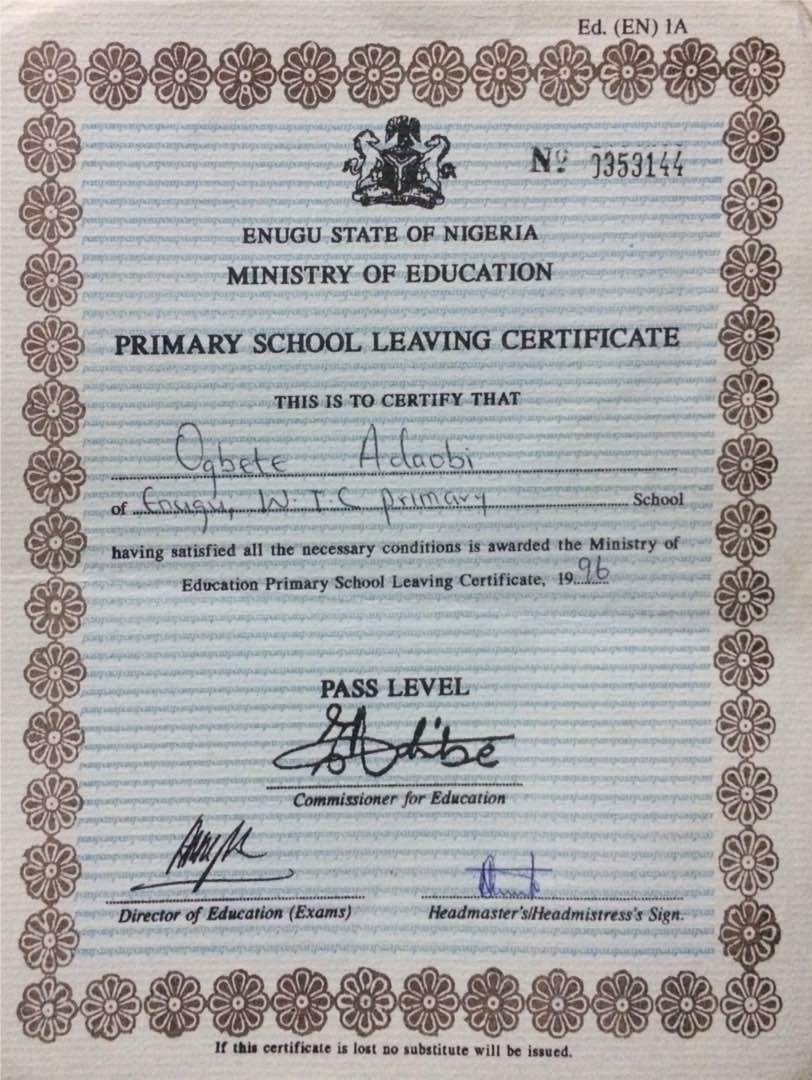 Ed. (EN) 1A
Nº 0353144
ENUGU STATE OF NIGERIA
MINISTRY OF EDUCATION
PRIMARY SCHOOL LEAVING CERTIFICATE
THIS IS TO CERTIFY THAT
Ogbete Adaobi
of Enugu, W.T.C primary School
having satisfied all the necessary conditions is awarded the Ministry of
Education Primary School Leaving Certificate, 1996
PASS LEVEL
Commissioner for Education
Director of Education (Exams)
Headmaster's/Headmistress's Sign.
If this certificate is lost no substitute will be issued.